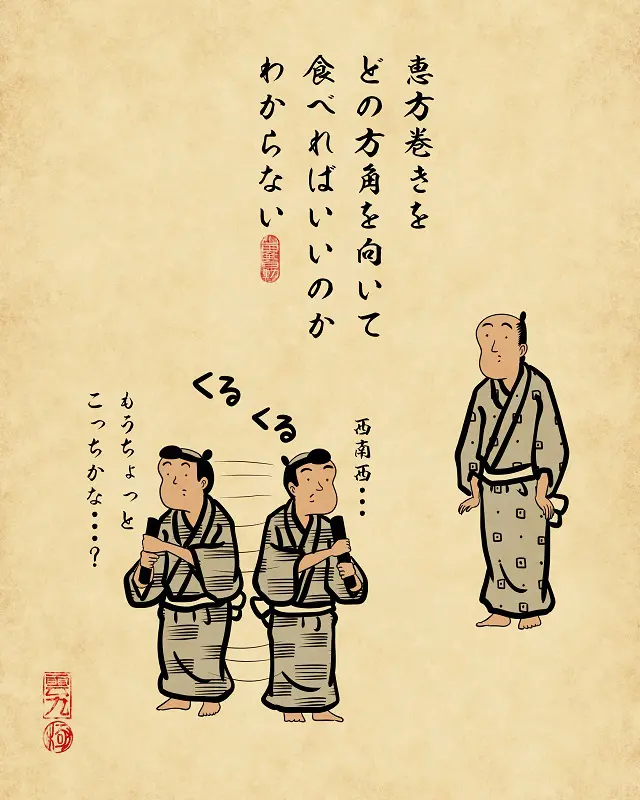 恵方巻きを
どの方角を向いて
食べればいいのか
わからない
くるくる
西南西・・・
もうちょっと
こっちかな・・・?